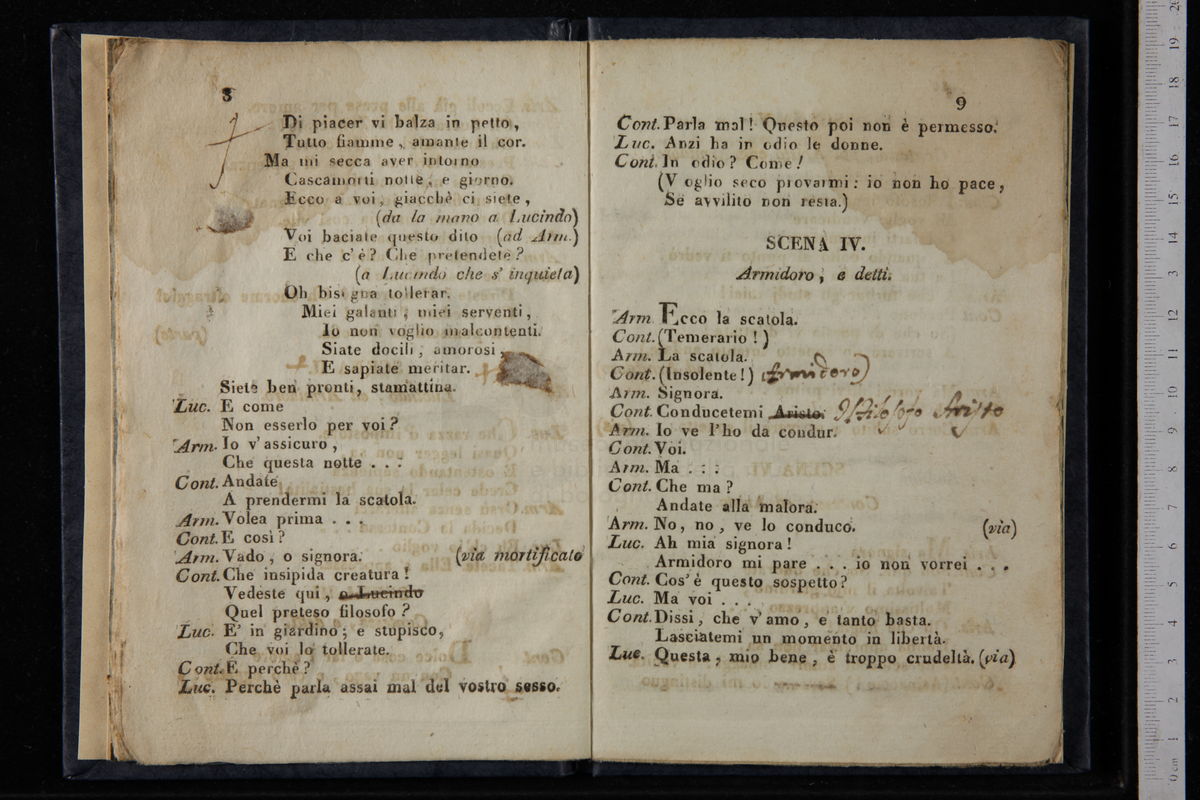 8
Di piacer vi balza in petto,
Tutto fiamme, amante il cor.
Ma mi secca aver intorno
Cascamorti notte, e giorno.
Ecco a voi, giacchè ci siete,
(da la mano a Lucindo)
Voi baciate questo dito (ad Arm.)
E che c'è? Che pretendete?
(a Lucindo che s'inquieta)
Oh bisogna tollerar.
Miei galanti, miei serventi,
Io non voglio malcontenti.
Siate docili, amorosi,
E sapiate meritar.
Siete ben pronti, stamattina.
Luc. E come
Non esserlo per voi?
Arm. Io v'assicuro,
Che questa notte . . .
Cont. Andate
A prendermi la scatola.
Arm. Volea prima . . .
Cont. E così?
Arm. Vado, o signora. (via mortificato
Cont. Che insipida creatura!
Vedeste qui, o Lucindo
Quel preteso filosofo?
Luc. E' in giardino; e stupisco,
Che voi lo tollerate.
Cont. E perchè?
Luc. Perchè parla assai mal del vostro sesso.
9
Cont. Parla mal! Questo poi non è permesso.
Luc. Anzi ha in odio le donne.
Cont. In odio? Come!
(Voglio seco provarmi: io non ho pace,
Se avvilito non resta.)
SCENA IV.
Armidoro, e detti.
Arm. Ecco la scatola.
Cont. (Temerario!)
Arm. La scatola.
Cont. (Insolente!) (Armidoro)
Arm. Signora.
Cont. Conducetemi Aristo. Il Filosofo Aristo
Arm. Io ve l'ho da condur.
Cont. Voi.
Arm. Ma . : :
Cont. Che ma?
Andate alla malora.
Arm. No, no, ve lo conduco. (via)
Luc. Ah mia signora!
Armidoro mi pare . . . io non vorrei . . .
Cont. Cos'è questo sospetto?
Luc. Ma voi . . .
Cont. Dissi, che v'amo, e tanto basta.
Lasciatemi un momento in libertà.
Luc. Questa, mio bene, è troppo crudeltà. (via)